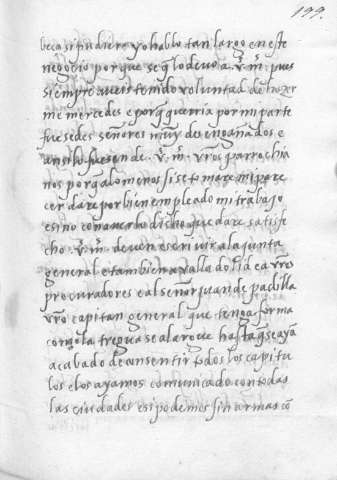 199.
beça si pudiere yo hablo tan largo en este
negoçio porque se q lo devo a .v. m. pues
siempre aveis tenido voluntad de hazer
me merçedes e porq querria por mi parte
fuesedes señores muy desengañados e
ansi lo fuesen de .v. m. vros parrochia
nos porq a lo menos si se tomare mi pare
çer dare por bien empleado mi trabajo
e si no con averlo dicho quedare satisfe
cho .v. m. deven escrivir a la junta
general e tambien a valladolid e a vros
procuradores e al señor juan de padilla
vro capitan general que tenga forma
como la tregua se alargue hasta q se aya
acabado de consentir todos los capitu
los e lo ayamos comunicado con todas
las çiudades e si podemos sin armas cō